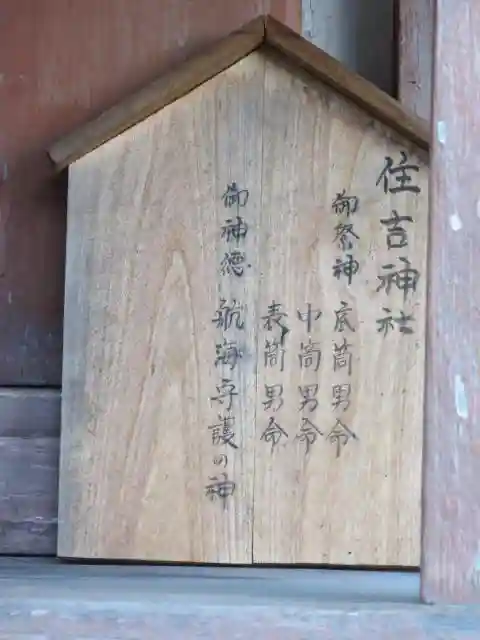 住吉神社
御祭神 底筒男命
中筒男命
表筒男命
御神徳 航海守護の神